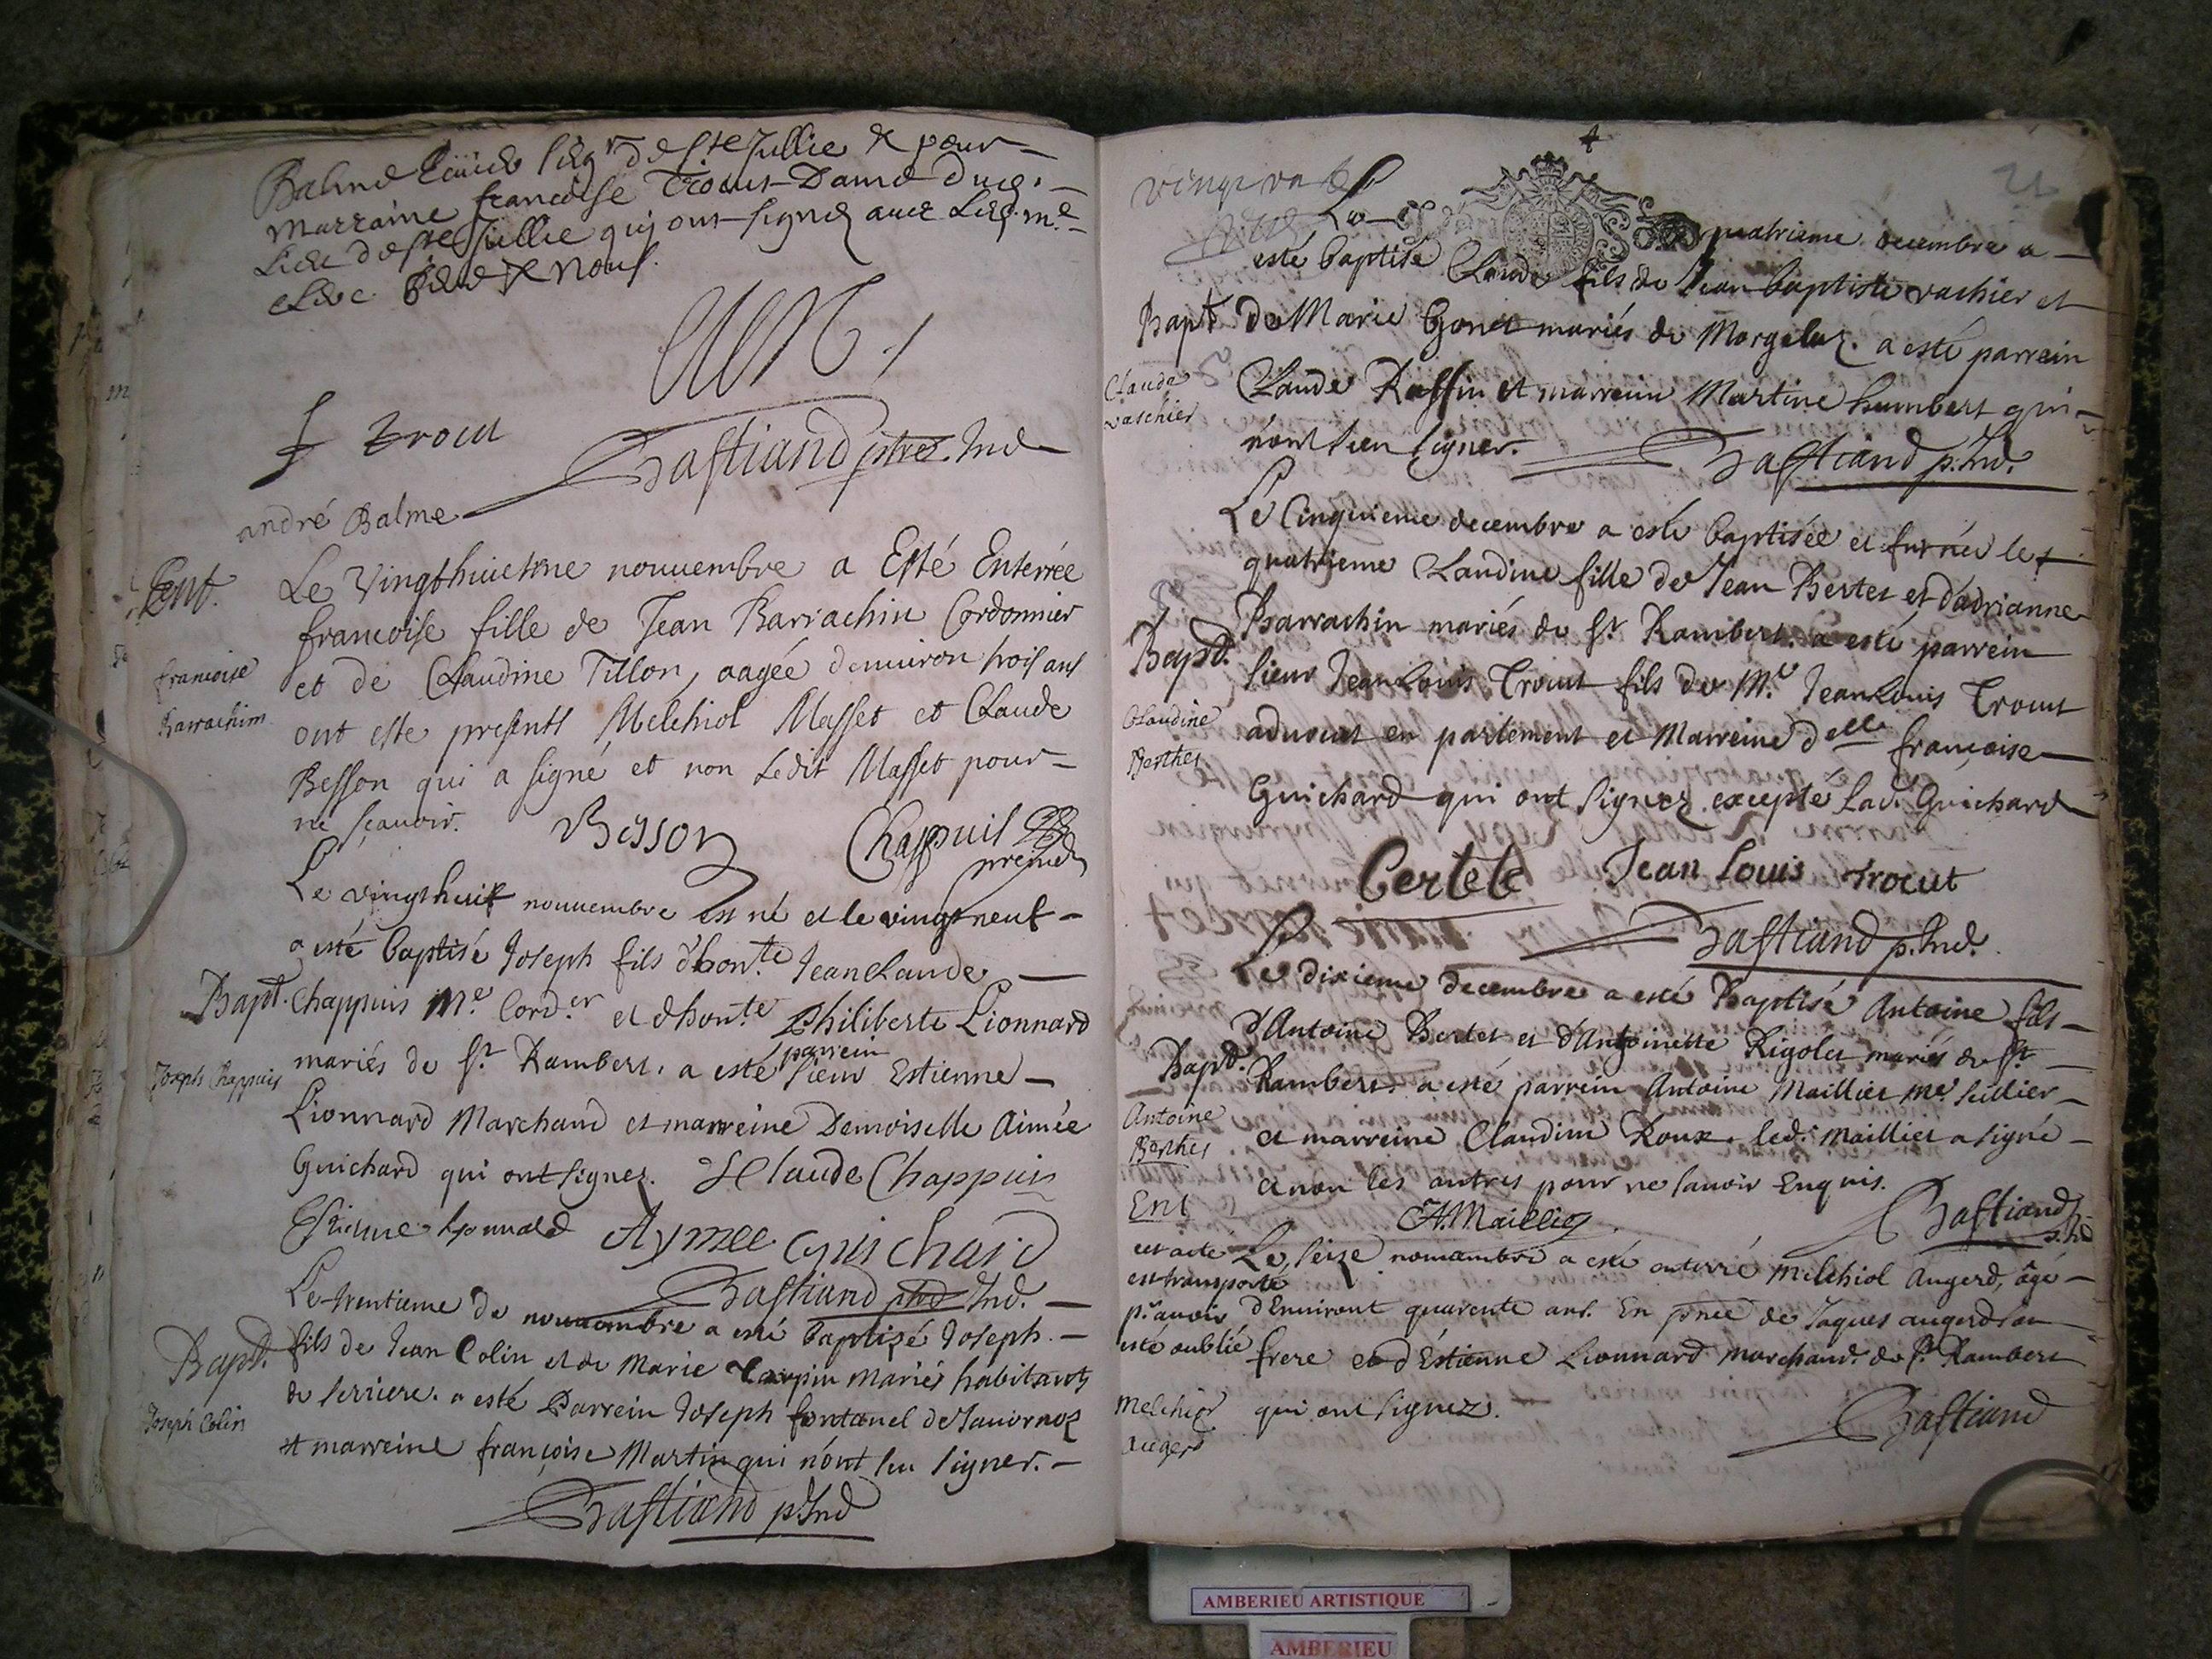 Balme Sieur de Ste Jullie & pour
Marraine francoise Trocut Dame dud.
Lieu de Ste Jullie qui ont signés avec Led. me
& Nous.
Trocut
Bastiand ptre. Ind
andré Balme
Ent.
Le Vingthuictme nouuembre a Esté Enterrée
francoise fille de Jean Barrachin Cordonnier
francoise
Barrachim
et de Claudine Tillon, aagée denuiron trois ans
ont este presents Melchiol Masset et Claude
Besson qui a signé et non Ledit Masset pour
ne sçauoir.
Besson
Chappuis
Le vingthuit nouuembre est né et le vingtneuf
a esté baptisé Joseph fils d'hon.te Jean Claude
Bapt.
Chappuis Me. Cord.er et d'hon.te Philiberte Lionnard
Joseph Chappuis
mariés de St. Rambert. a esté parrein sieur Estienne
Lionnard Marchand et marreine Demoiselle Aimée
Guichard qui ont signez. J Claude Chappuis
Estienne Lyonnard Aymee Guichard
Bastiand Ind.
Le trentieme de nouuembre a esté baptizé Joseph
Bapt.
fils de Jean Colin et de Marie Carpin mariés habitants
de Serriere. a esté Parrein Joseph fontanel de Jauornoz
Joseph Colin
et marreine françoise Martin qui n'ont seu signer.
Bastiand p. Ind
vingt un
21
Le quatrieme decembre a
esté baptisé Claude fils de Jean baptiste vachier et
Bapt.
de Marie Gonet mariés de Morgelaz. a esté parrein
Claude
vaschier
Claude Raffin et marreine Martine humbert qui
n'ont seu signer.
Bastiand p. Ind.
Le Cinquieme decembre a esté baptisée et fut née le
quatrieme Claudine fille de Jean Bertet et d'adrianne
Bapt.
Barrachin mariés de St. Rambert. a esté parrein
sieur Jean Louis Trocut fils de Me. Jean Louis Trocut
Claudine
Berthet
aduocat en parlement et Marreine delle françoise
Guichard qui ont signez excepté lad. Guichard
Certete Jean Louis Trocut
Bastiand p. Ind.
Le dixieme decembre a esté Baptisé Antoine fils
d'Antoine Bertet et d'Antoinette Rigolet mariés de St.
Bapt.
Rambert. a esté parrein Antoine Maillier me. sellier
Antoine
Berthet
et marreine Claudine Roux. led. Maillier a signé
et non les autres pour ne sauoir Enquis.
A. Maillier
Bastiand
p. Ind
Ent
cet acte
est transporté
pr. auoir
esté oublié
Le seize nouuambre a esté enterré Melchiol Augerd, âgé
d'Enuiront quarente ans. En pnce de Jaques augerd son
frere et d'Estienne Lionnard marchand. de St. Rambert
Melchior
augerd
qui ont signez.
Bastiand
AMBERIEU ARTISTIQUE
AMBERIEU